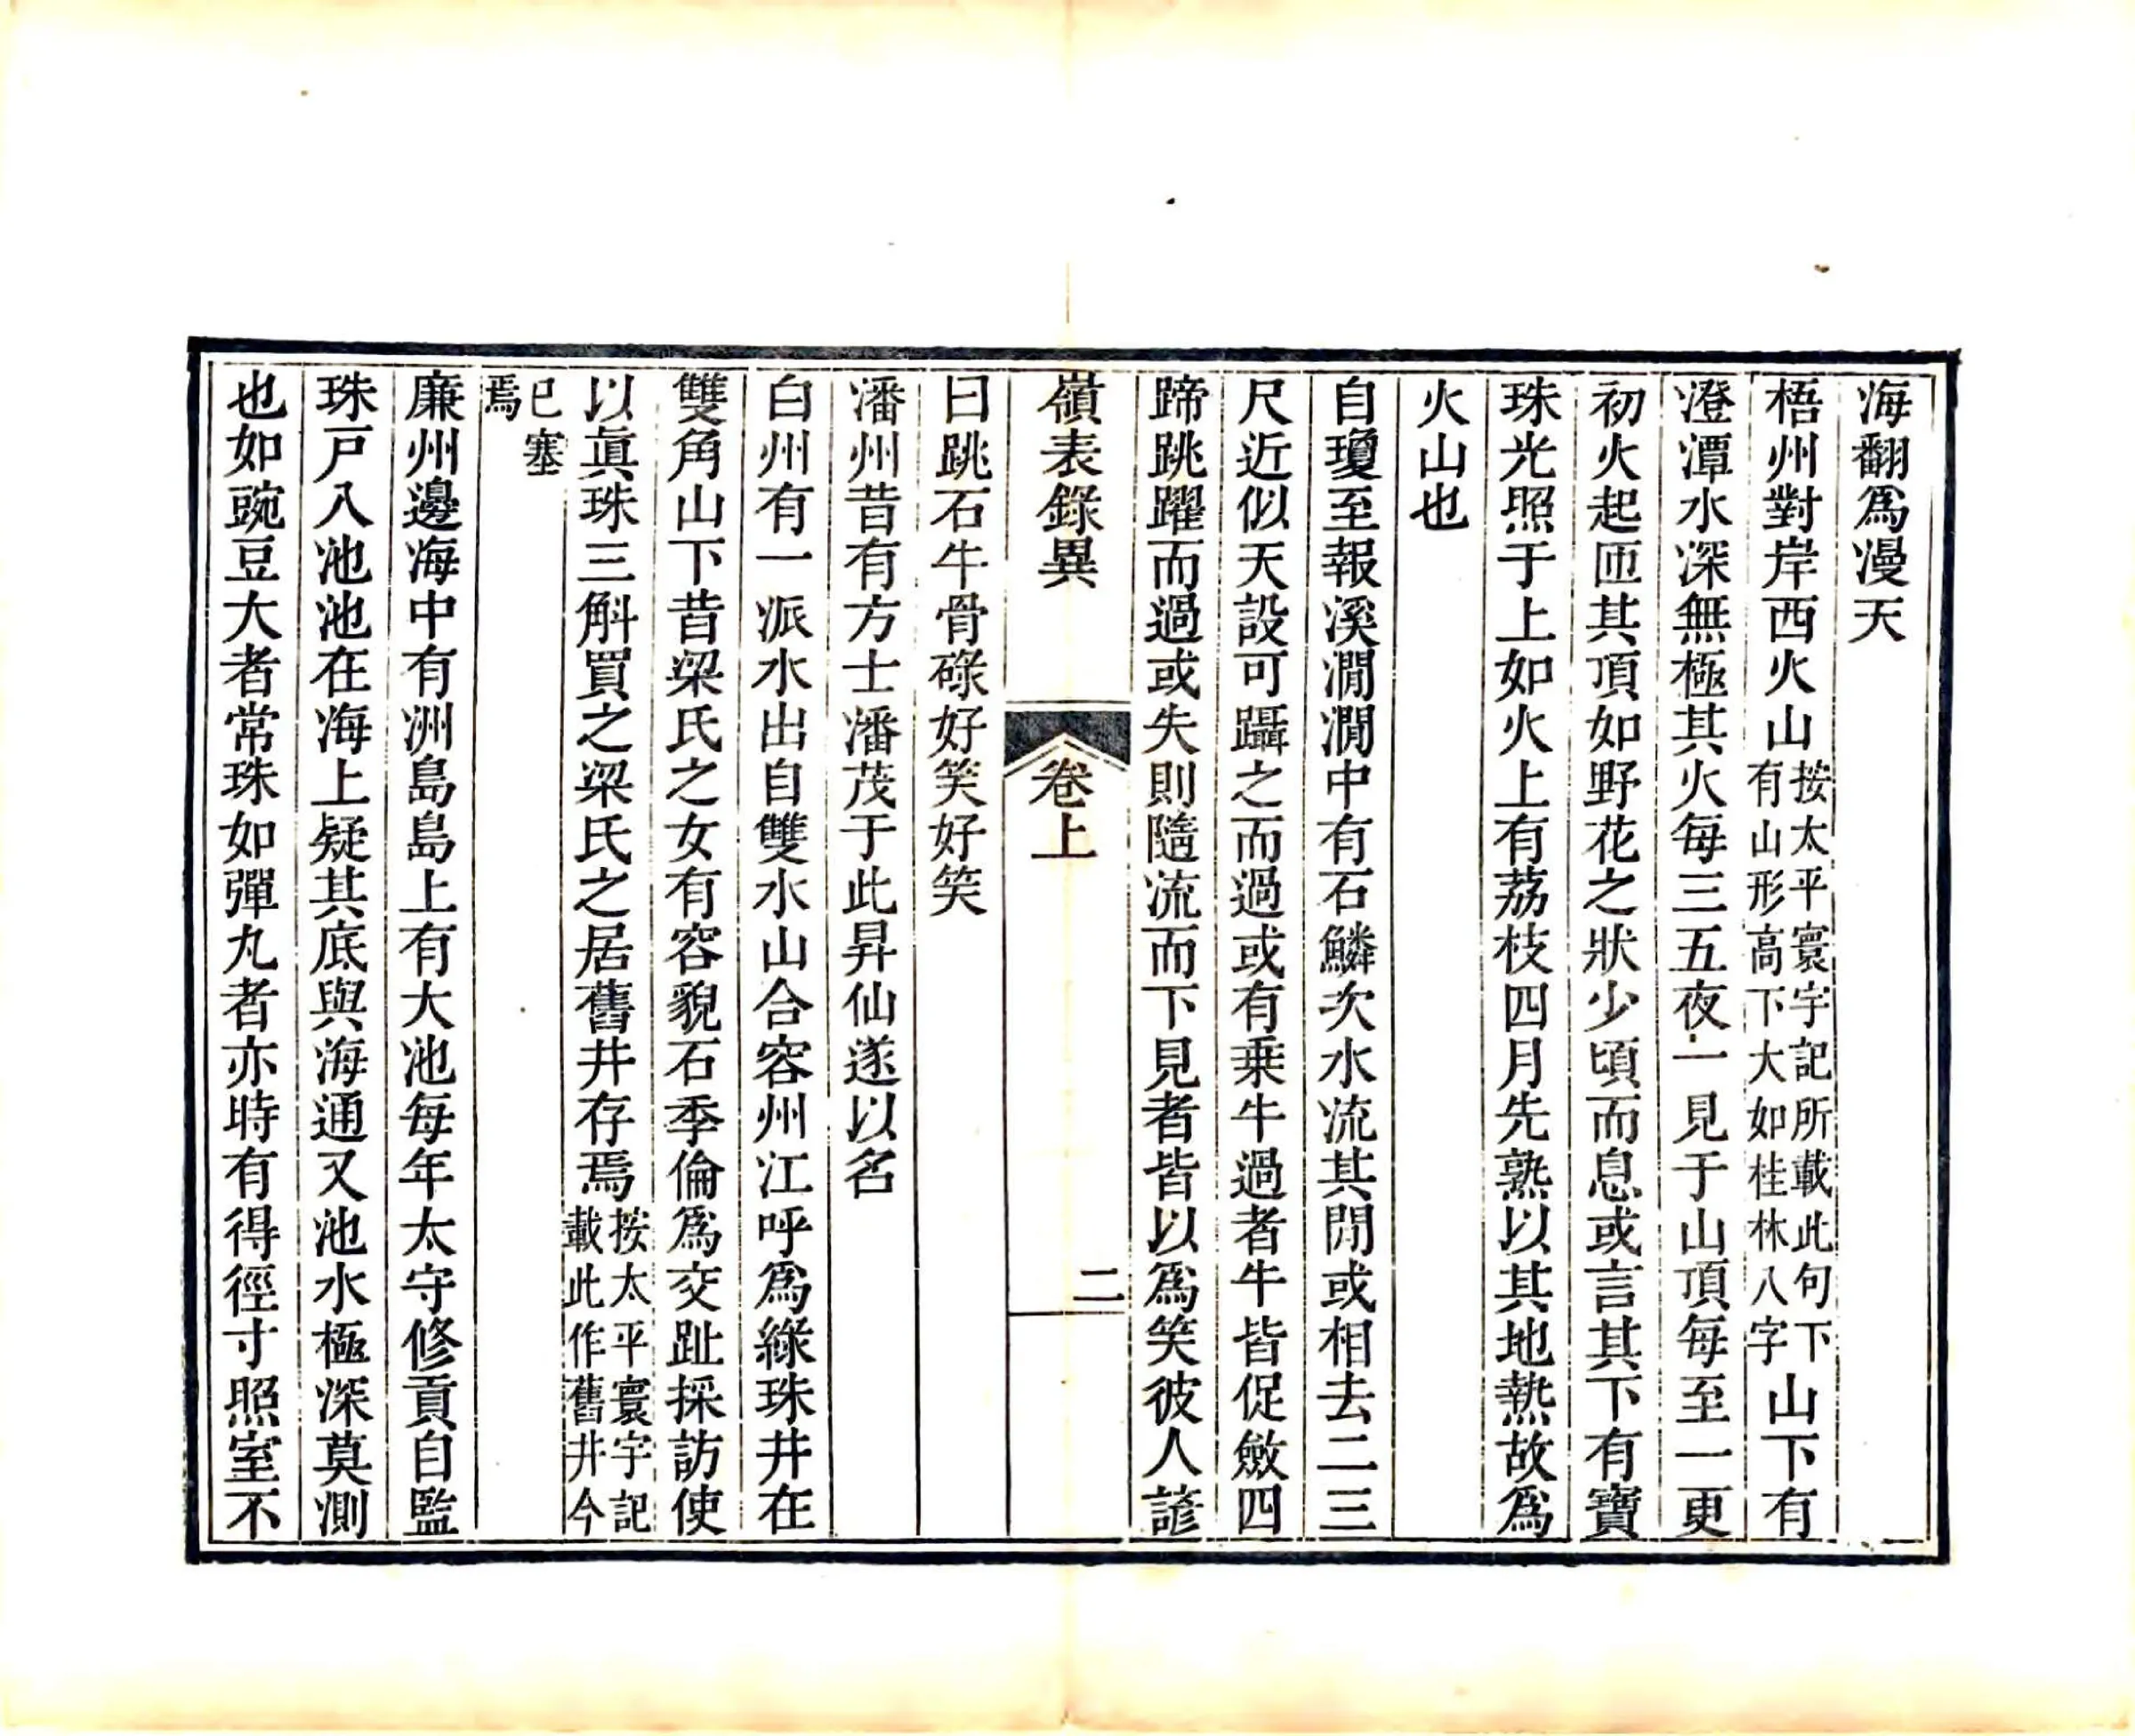 海翻爲漫天
梧州對岸西火山按太平寰宇記所載此句下有山形高下大如桂林八字山下有
澄潭水深無極其火每三五夜一見于山頂每至一更
初火起匝其頂如野花之狀少頃而息或言其下有寶
珠光照于上如火上有荔枝四月先熟以其地熱故爲
火山也
自瓊至報溪澗澗中有石鱗次水流其閒或相去二三
尺近似天設可躡之而過或有乗牛過者牛皆促斂四
蹄跳躍而過或失則隨流而下見者皆以爲笑彼人諺
嶺表錄異
卷上
二
曰跳石牛骨碌好笑好笑
潘州昔有方士潘茂于此昇仙遂以名
白州有一派水出自雙水山合容州江呼爲綠珠井在
雙角山下昔梁氏之女有容貌石季倫爲交趾採訪使
以眞珠三斛買之梁氏之居舊井存焉按太平寰宇記載此作舊井今
已塞焉
廉州邊海中有洲島島上有大池每年太守修貢自監
珠戸入池池在海上疑其底與海通又池水極深莫測
也如豌豆大者常珠如彈丸者亦時有得徑寸照室不